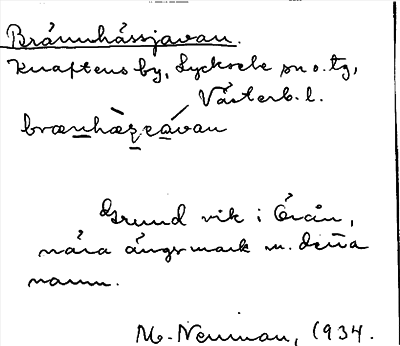 Brännhässjavan.
Knaftens by, Lycksele sn o. tg,
Västerb. l.
brænhæʒeavan
Grund vik i Örån,
nära ängsmark m. detta
namn.
M. Neuman, 1934.